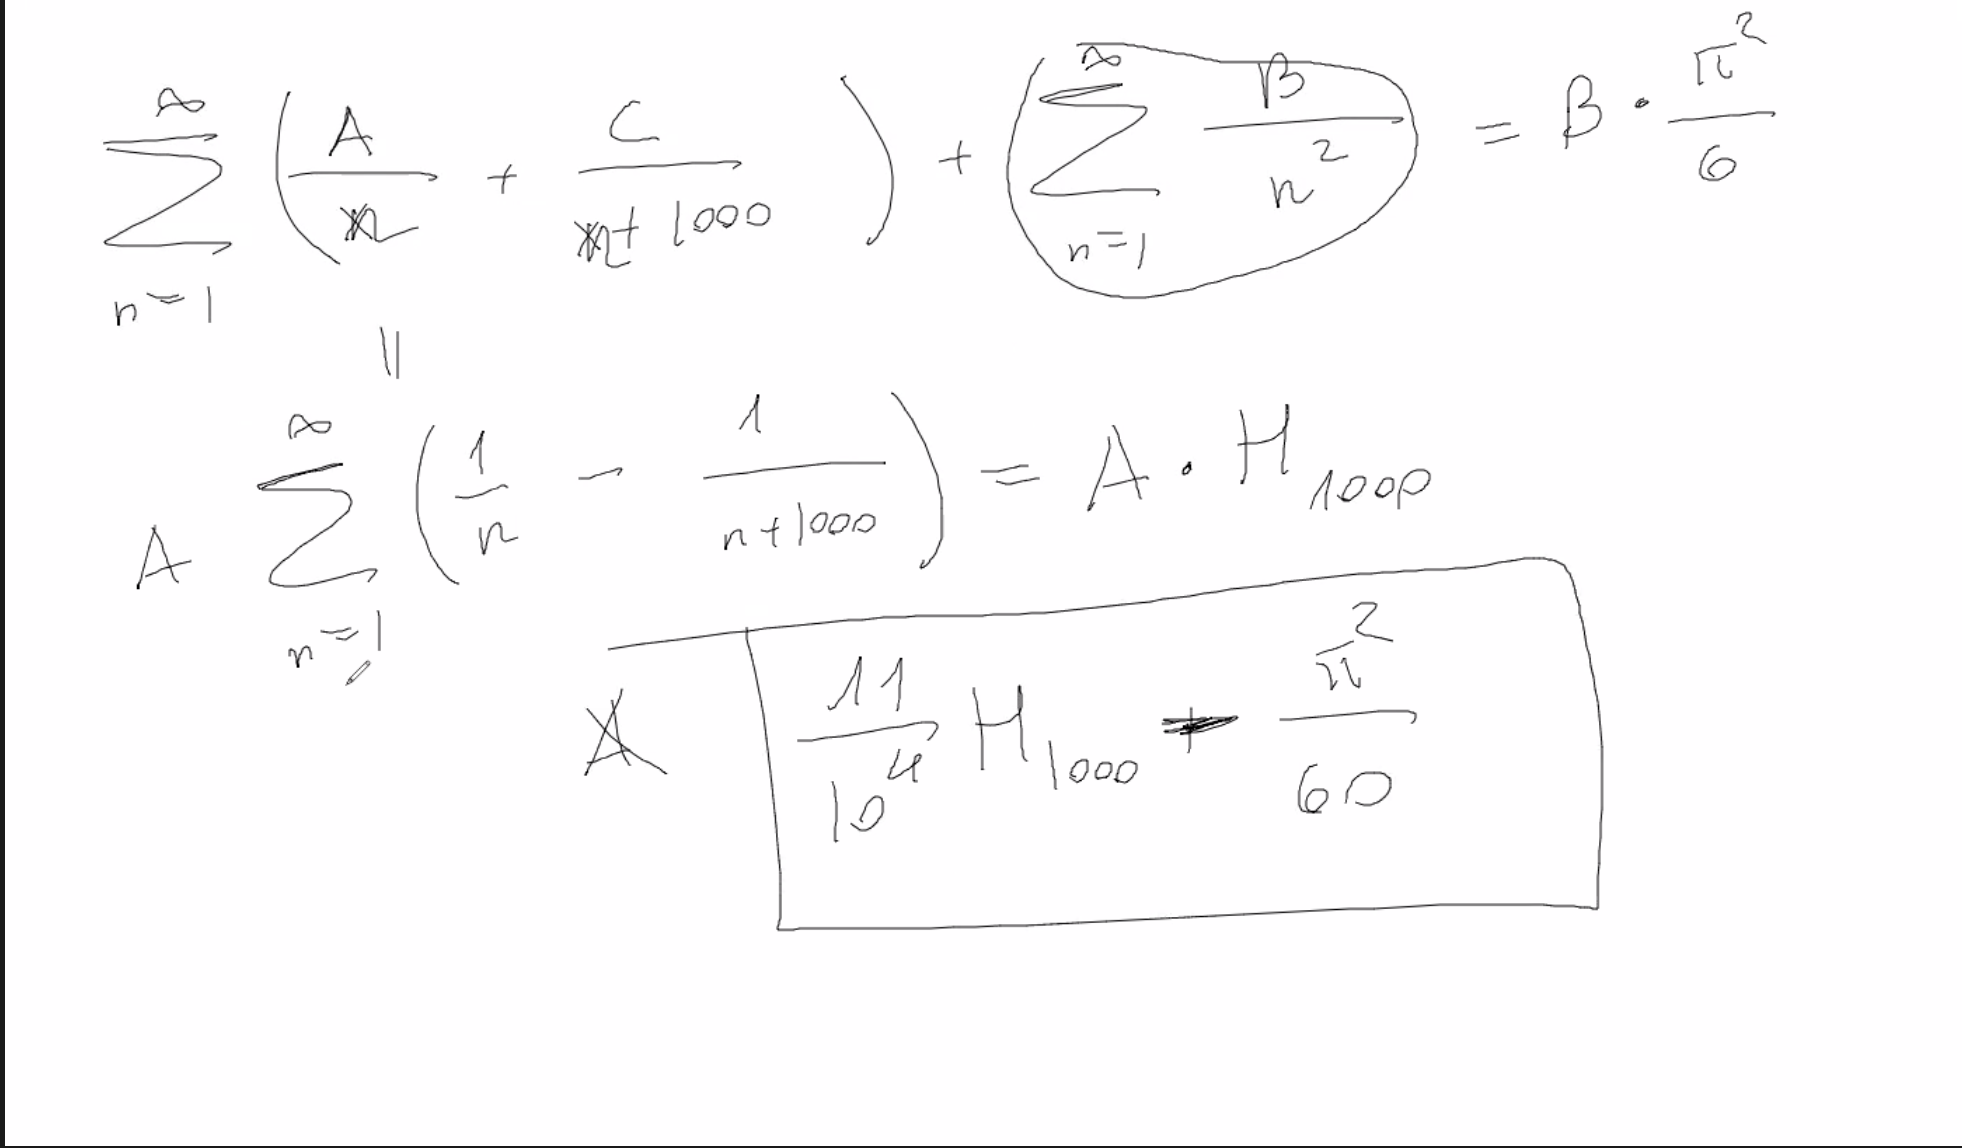 ∞ ∑ n=1 ( A/n + C/n+1000 ) + ( ∞ ∑ n=1 B/n² = B · π²/6
||
A ∞ ∑ n=1 ( 1/n - 1/n+1000 ) = A · H 1000
11/10⁴ H 1000 + π²/60